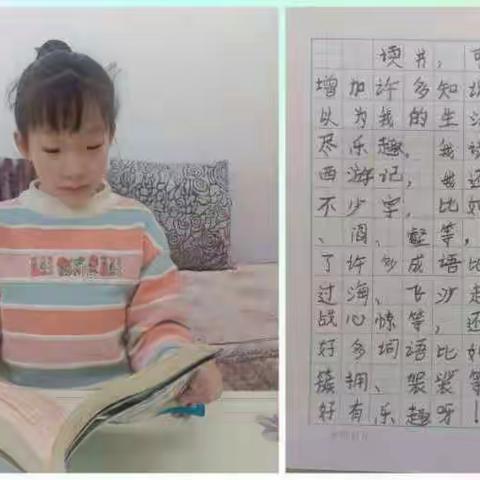 读书，可
增加许多知识
以为我的生活
尽乐趣。我读
西游记，我还
不少字，比如
、阎、等，
了许多成语比
过海、飞沙走
战心惊等，还
好多词语比如
簇拥、袈裟等
好有乐趣呀！